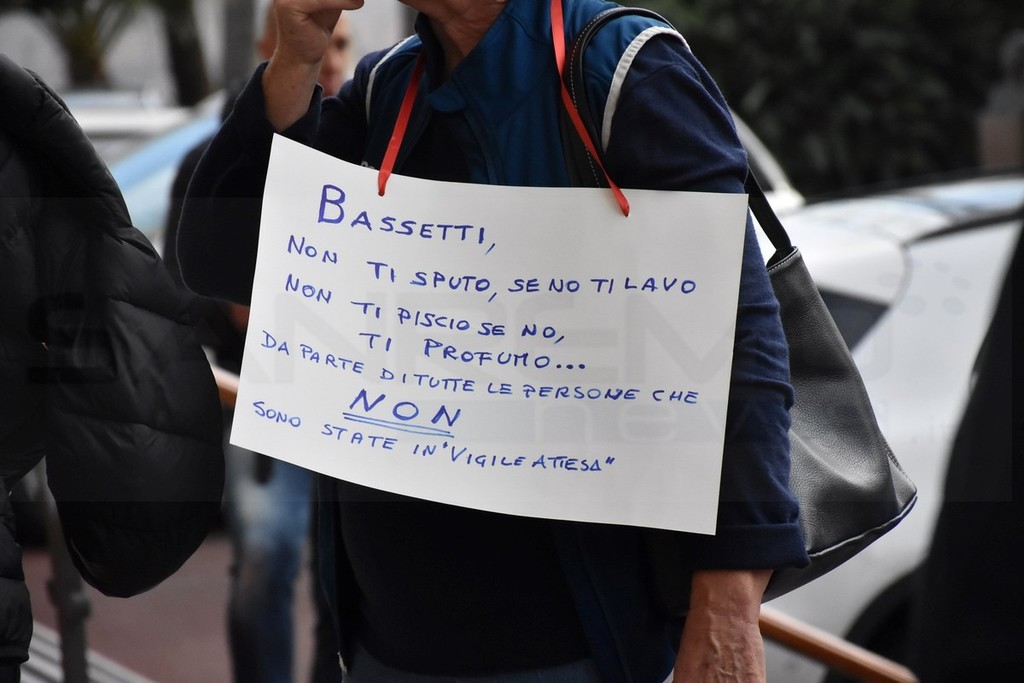 BASSETTI,
NON TI SPUTO, SE NO TI LAVO
NON TI PISCIO SE NO,
TI PROFUMO...
DA PARTE DI TUTTE LE PERSONE CHE
NON
SONO STATE IN "VIGILE ATTESA"